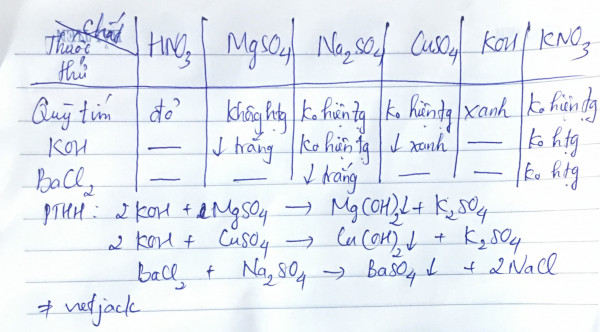 Chất
Thuốc thử | HNO3 | MgSO4 | Na2SO4 | CuSO4 | KOH | KNO3
Quỳ tím | đỏ | không htg | ko hiện tg | ko hiện tg | xanh | ko hiện tg
KOH | — | ↓ trắng | ko hiện tg | ↓ xanh | — | ko htg
BaCl2 | — | — | ↓ trắng | — | — | ko htg
PTHH: 2KOH + MgSO4 → Mg(OH)2↓ + K2SO4
2KOH + CuSO4 → Cu(OH)2↓ + K2SO4
BaCl2 + Na2SO4 → BaSO4↓ + 2NaCl
# netjack